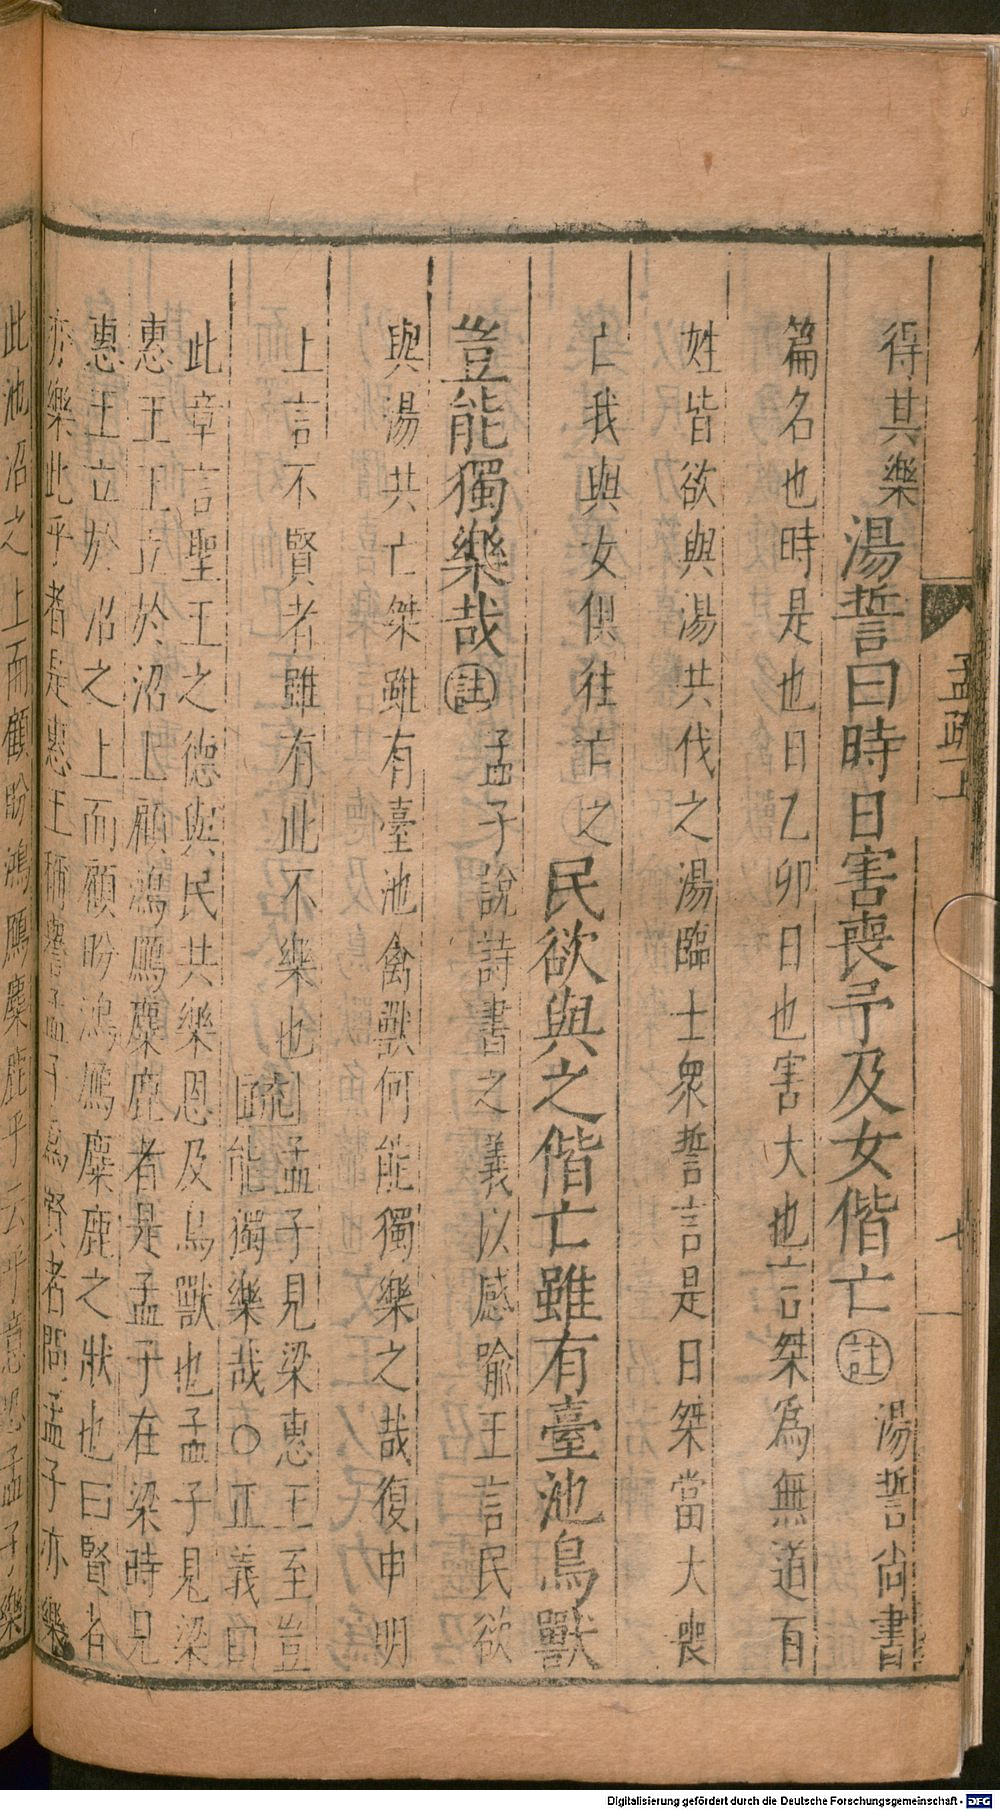 孟疏上
七
得其樂湯誓曰時日害喪予及女偕亡註湯誓尚書
篇名也時是也日乙卯日也害大也言桀爲無道百
姓皆欲與湯共伐之湯臨士衆誓言是日桀當大喪
亡我與女俱往亡之民欲與之偕亡雖有臺池鳥獸
豈能獨樂哉註孟子說詩書之義以感喻王言民欲
與湯共亡桀雖有臺池禽獸何能獨樂之哉復申明
上言不賢者雖有此不樂也疏孟子見梁惠王至豈
能獨樂哉○正義曰
此章言聖王之德與民共樂恩及鳥獸也孟子見梁
惠王王立於沼上顧鴻鴈麋鹿者是孟子在梁時見
惠王立於沼之上而顧盼鴻鴈麋鹿之狀也曰賢者
亦樂此乎者是惠王稱譽孟子爲賢者問孟子亦樂
此池沼之上而顧盼鴻鴈麋鹿乎云乎意恐孟子樂
Digitalisierung gefördert durch die Deutsche Forschungsgemeinschaft - DFG